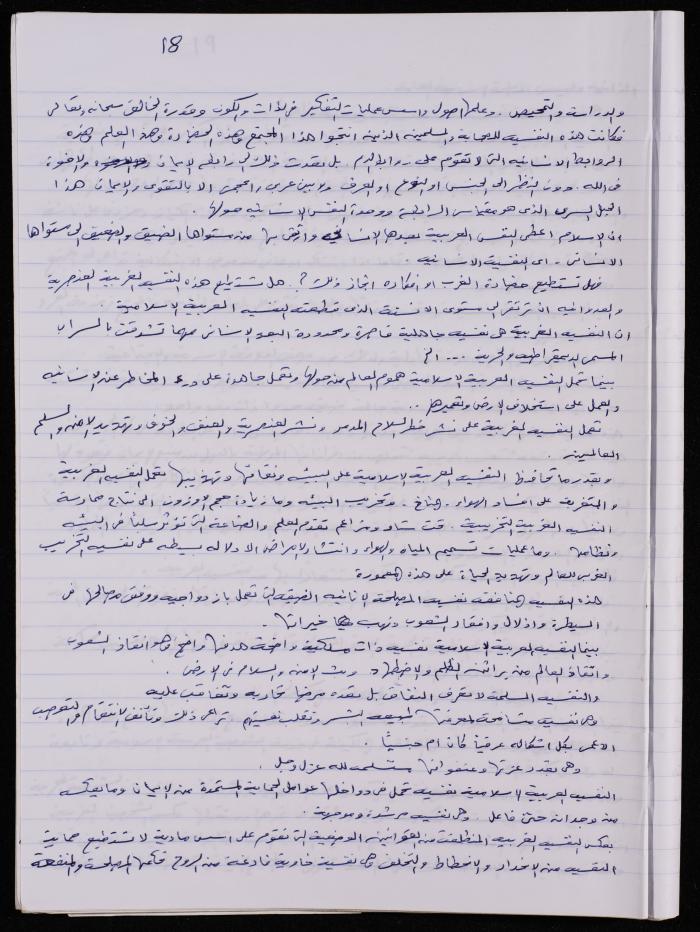 18
والدراسة والتمحيص . وعلمها اصول واسس عمليات التفكير في الذات والكون وقدرة الخالق سبحانه وتعالى
فكانت هذه النفسية للصحابة والمسلمين الذين انتجوا هذا المجتمع وهذه الحضارة وهذا العلم وهذه
الروابط الانسانية التي لا تقوم على روابط الدم بل تعدت ذلك الى رابطة الايمان والاخوة
في الله . دون النظر الى الجنس او النوع او العرف ولا بين عربي واعجمي الا بالتقوى والايمان هذا
الحبل السري الذي هو مقياس الرابطة ووحدة النفس الانسانية حولها .
ان الاسلام اعطى النفس العربية بعدها الانساني وارتقى بها من مستواها الضيق والصعيق الى مستواها
الانساني . اي النفسية الانسانية .
فهل تستطيع حضارة الغرب او افكاره انجاز ذلك ؟ . هل تستطيع هذه النفسية الغربية العنصرية
والعدوانية ان ترتقي الى مستوى الانسنة الذي قطعته النفسية العربية الاسلامية .
ان النفسية الغربية هي نفسية جاهلية قاصرة ومحدودة البعد الانساني مهما تشدقت بالسراب
المسمى الديمقراطية والحرية ... الخ
بينما تحمل النفسية العربية الاسلامية هموم العالم من حولها وتعمل جاهدة على درء المخاطر عن الانسانية
والعمل على استخلاف الارض وتعميرها ..
تعمل النفسية الغربية على نشر خطر السلاح المدمر ونشر العنصرية والعنف والخوف وتهديد الامن والسلم
العالميين .
وبقدر ما تحافظ النفسية العربية الاسلامية على البيئة ونقائها وتهذيبها تعمل النفسية الغربية
والمتغربة على افساد الهواء والمناخ . وتخريب البيئة وما زيادة حجم الاوزون الى نتاج ممارسة
النفسية الغربية التخريبية . تحت ستار ومزاعم تقدم العلم والصناعة التي تؤثر سلباً في البيئة
ونظامها . وما عمليات تسميم المياه والهواء وانتشار الامراض الا دلالة بسيطة على نفسية التخريب
الغربي للعالم وتهديد الحياة على هذه المعمورة
هذه النفسية المنافقة نفسية المصلحة الانانية الضيقة التي تعمل بازدواجية ووفق مصالحها في
السيطرة واذلال وافقار الشعوب ونهب خيراتها .
بينما النفسية العربية الاسلامية نفسية ذات مسلكية واضحة هدفها واضح وهو انقاذ الشعوب
وانقاذ العالم من براثن الظلم والاضطهاد وبث الامن والسلام في الارض .
والنفسية المسلمة لا تعرف النفاق بل تعده مرضاً تحاربه وتعاقب عليه
وهي نفسية متسامحة لمعرفتها طبيعة البشر وتقلب نفسيتهم تراعي ذلك وتأنف الانتقام والتعصب
الاعمى بكل اشكاله عرقياً كان ام جنسياً .
وهي بقدر عزتها وعنفوانها مستسلمة لله عز وجل .
النفسية العربية الاسلامية نفسية تحمل في دواخلها عوامل الحماية المستمرة من الايمان وما يعكسه
من وجدان حي فاعل . وهي نفسية مرشدة وموجهة .
بعكس النفسية الغربية المنطلقة من القوانين الوضعية التي تقوم على اسس مادية لا تستطيع حماية
النفسية من الانحدار والانحطاط والتخلف وهي نفسية خاوية فارغة من الروح قائمها المصلحة والمنفعة